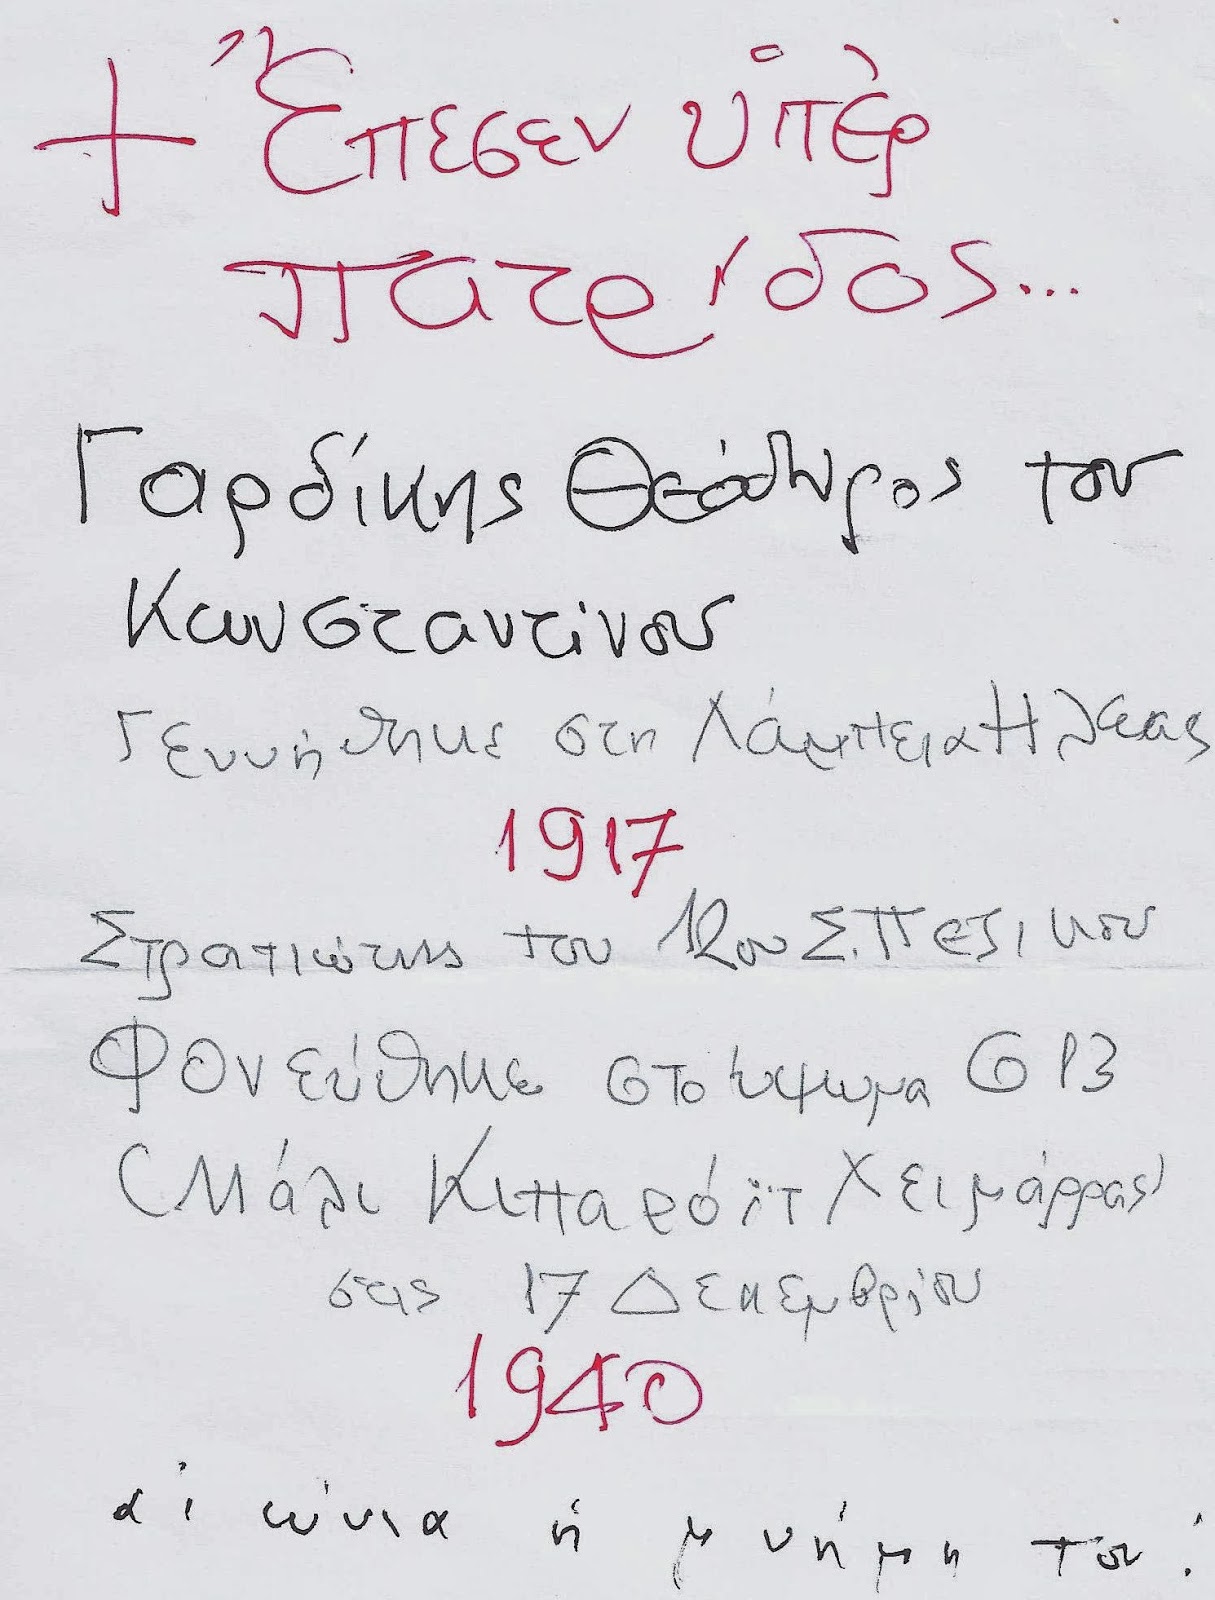 + Ἔπεσεν ὑπὲρ
πατρίδος...
Γαρδίκης Θεόδωρος του
Κωνσταντίνου
Γεννήθηκε στη Λάμπεια Ηλείας
1917
Στρατιώτης του 12ου Σ. Πεζικού
Φονεύθηκε στο ύψωμα 613
(Μάλι Κιπαρόϊτ Χειμάρρας)
στις 17 Δεκεμβρίου
1940
αἰώνια ἡ μνήμη του!